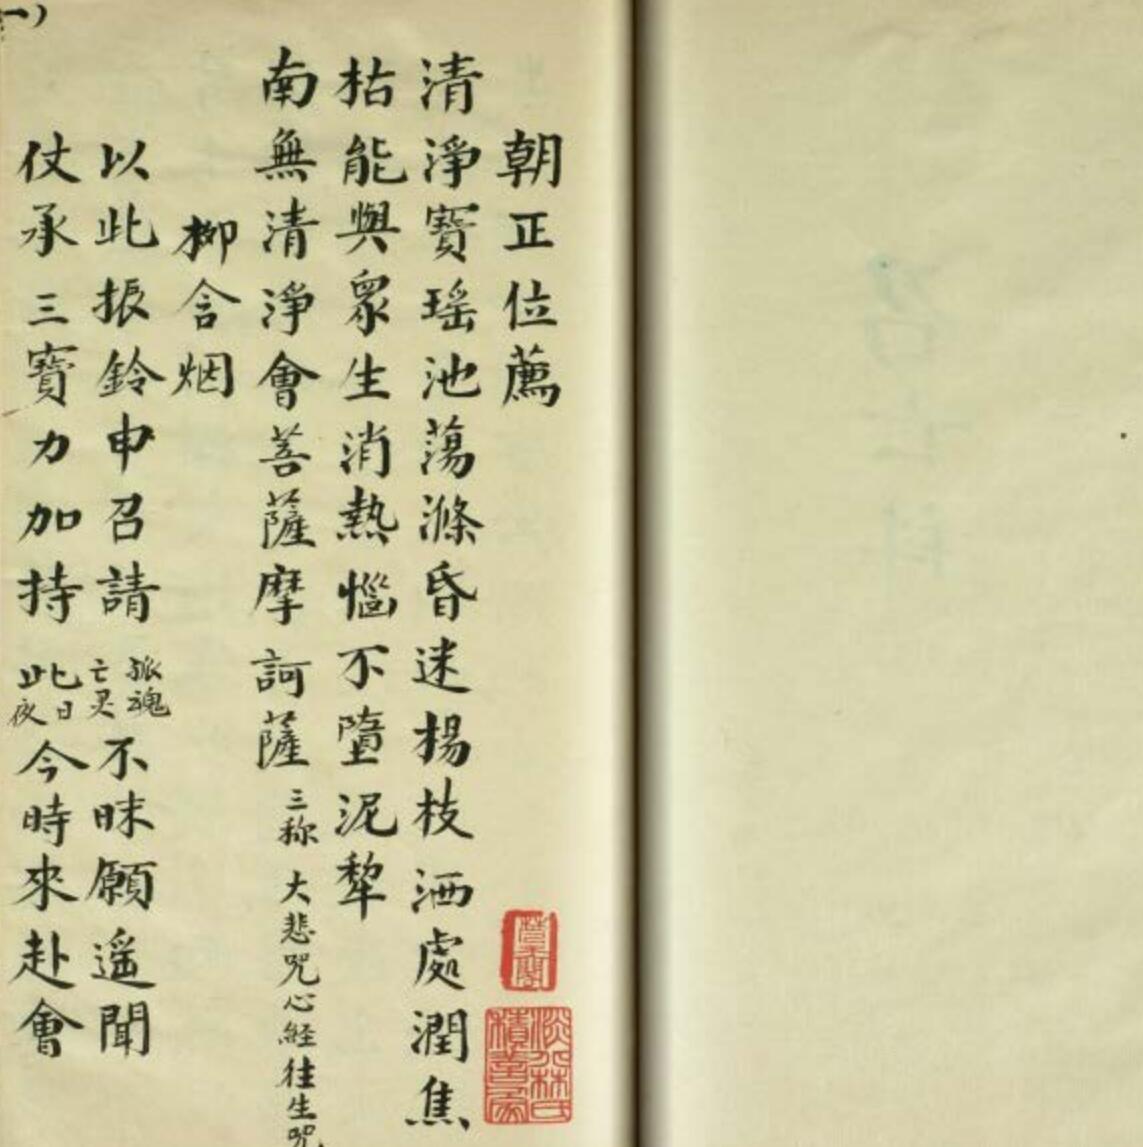 朝正位薦
清淨寶瑤池蕩滌昏迷楊枝洒處潤焦
枯能與眾生消熱惱不墮泥犂
南無清淨會菩薩摩訶薩 三称 大悲咒心経往生咒
柳含烟
以此振鈴申召請 孤魂 亡灵 不昧願遥聞
仗承三寶力加持 此日 夜 今時來赴會
一)